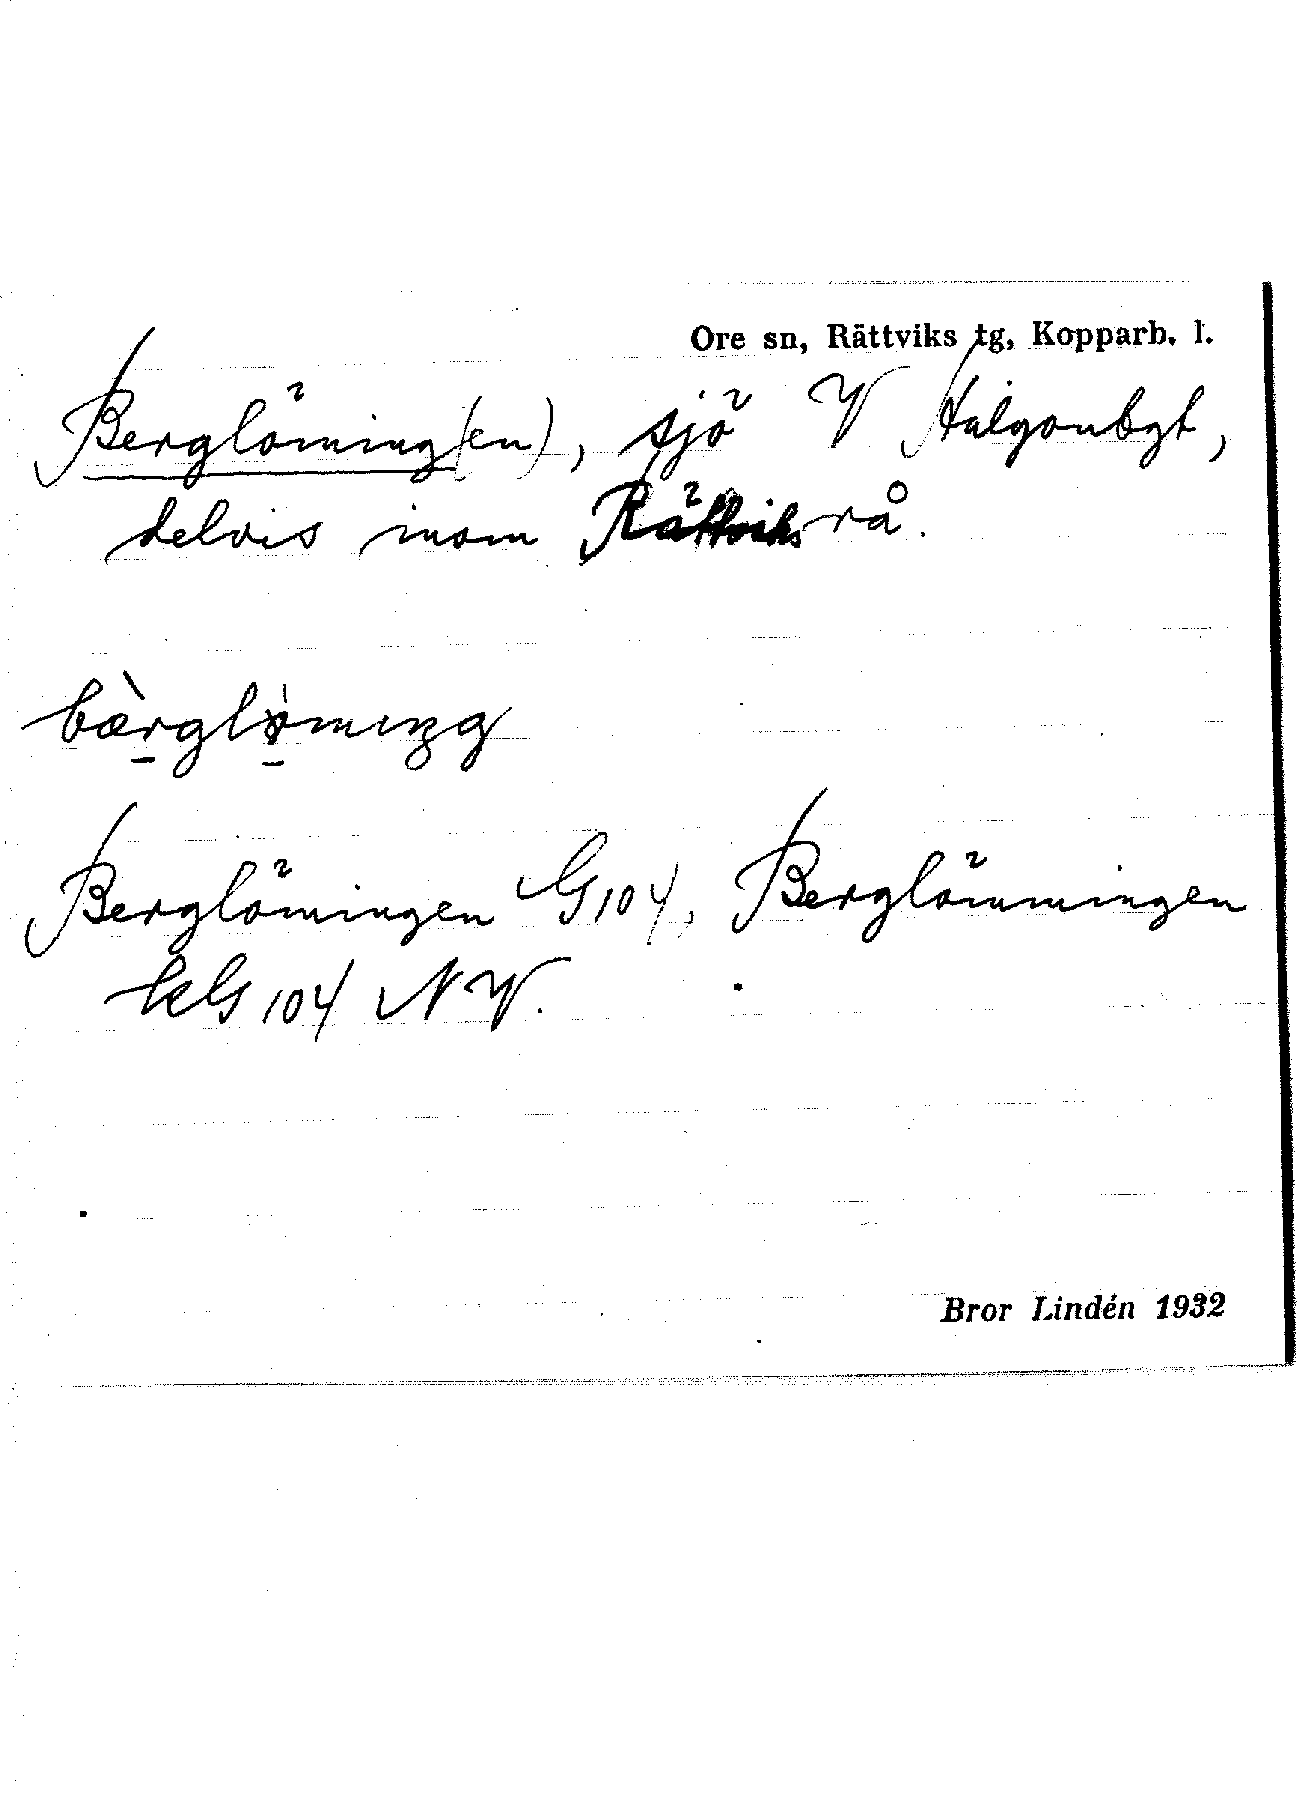 Ore sn, Rättviks tg, Kopparb. l.
Berglöming(en), sjö V Hälgonbgt,
delvis inom Rättviks rå.
bàrglömiŋg
Berglömingen G 104, Berglömmingen
kG 104 NV.
Bror Lindén 1932